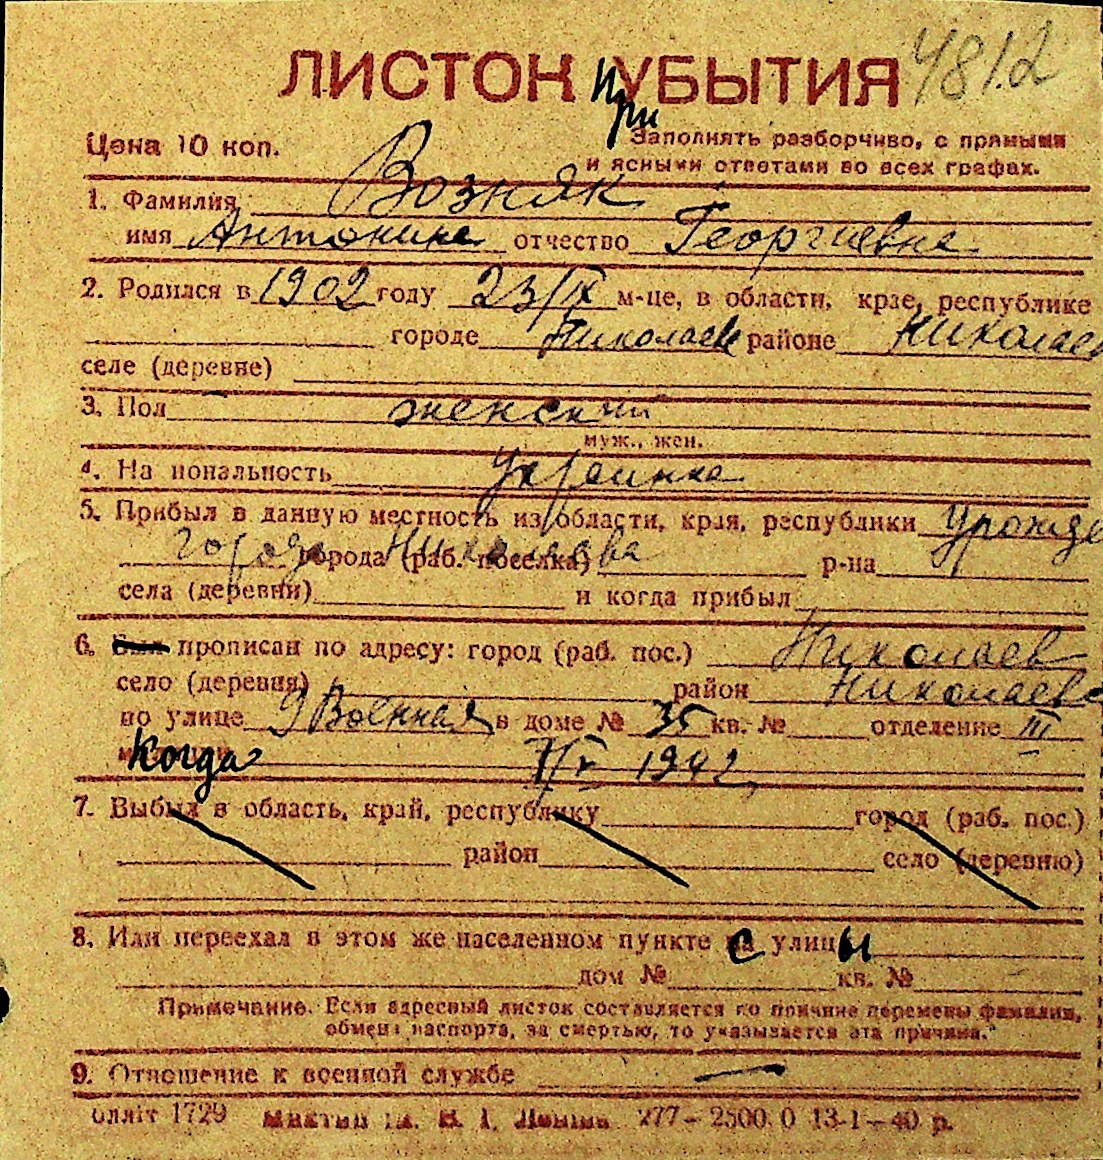 4812
ЛИСТОК при УБЫТИЯ
Цена 10 коп.
Заполнять разборчиво, с прямыми
и ясными ответами во всех графах.
1. Фамилия Возняк
имя Антонина отчество Георгиевна
2. Родился в 1902 году 23/IX м-це, в области, крае, республике
городе Николаев районе Николаев
селе (деревне)
3. Пол женский
муж., жен.
4. На иональность Украинка
5. Прибыл в данную местность из области, края, республики Урожде
города Николаева города (раб. поселка) р-на
села (деревни) и когда прибыл
6. Был прописан по адресу: город (раб. пос.) Николаев
село (деревня) район Николаевс
по улице 9 Военная в доме № 35 кв. № отделение III
милиции Когда 1942
7. Выбыл в область, край, республику город (раб. пос.)
район село (деревню)
8. Или переехал в этом же населенном пункте с улицы
дом № кв. №
Примечание. Если адресный листок составляется по причине перемены фамилии,
обмена паспорта, за смертью, то указывается эта причина.
9. Отношение к военной службе —
1729 277—2500.0 13-1—40 р.